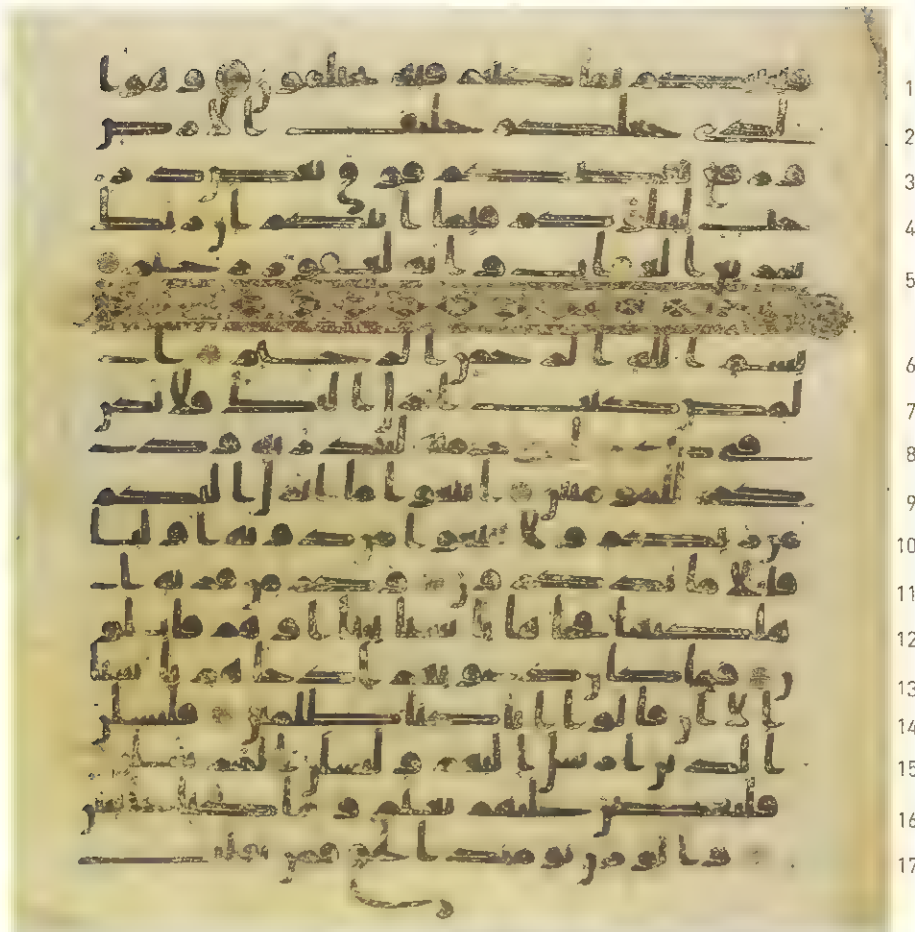 فينبئكم بما كنتم فيه تختلفون وهو ا 1
لذي جعلكم خلئف الارض 2
ورفع بعضكم فوق بعض در 3
جت ليبلوكم في ما اتىكم ان ربك 4
سريع العقاب وانه لغفور رحيم 5
بسم الله الرحمن الرحيم ا 6
لمص كتب انزل اليك فلا يكن 7
في صدرك حرج منه لتنذر به وذ 8
كرى للمؤمنين اتبعوا ما انزل اليكم 9
من ربكم ولا تتبعوا من دونه اوليا 10
قليلا ما تذكرون وكم من قرية ا 11
هلكنها فجاها باسنا بيتا او هم قايلو 12
ن فما كان دعويهم اذ جاهم باسنا 13
الا ان قالوا انا كنا ظلمين فلنسلن 14
الذين ارسل اليهم ولنسلن المرسلين 15
فلنقصن عليهم بعلم وما كنا غايبين 16
والوزن يومئذ الحق فمن ثقلت 17